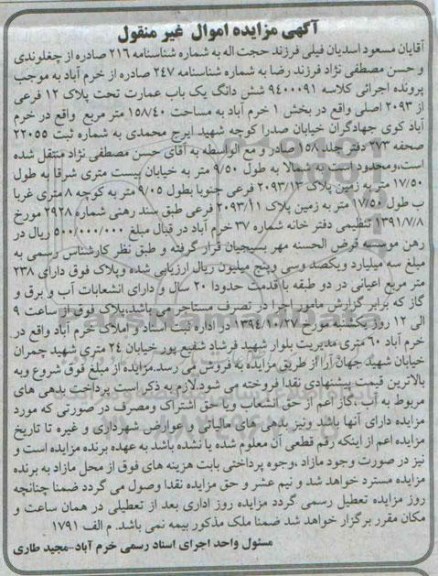 آگهی مزایده اموال غیر منقول
آقایان مسعود اسدیان فیلی فرزند حجت اله به شماره شناسنامه ۲۱۶ صادره از چغلوندی
و حسن مصطفی نژاد فرزند رضا به شماره شناسنامه ۲۴۷ صادره از خرم آباد به موجب
پرونده اجرائی کلاسه ۹۴۰۰۰۹۱ شش دانگ یک باب عمارت تحت پلاک ۱۲ فرعی
از ۲۰۹۳ اصلی واقع در بخش ۱ خرم آباد به مساحت ۱۵۸/۴۰ متر مربع واقع در خرم
آباد کوی جهادگران خیابان صدرا کوچه شهید ایرج محمدی به شماره ثبت ۲۲۰۵۵
صفحه ۲۷۳ دفتر جلد ۱۵۸ صادر و مع الواسطه به آقای حسن مصطفی نژاد منتقل شده
است،ومحدود است شمالا به طول ۹/۵۰ متر به خیابان بیست متری شرقا به طول
۱۷/۵۰ متر به زمین پلاک ۲۰۹۳/۱۳ فرعی جنوبا بطول ۹/۰۵ متر به کوچه ۸ متری غربا
ب طول ۱۷/۵۰ متر به زمین پلاک ۲۰۹۳/۱۱ فرعی طبق سند رهنی شماره ۲۹۲۸ مورخ
۱۳۹۱/۷/۸ تنظیمی دفتر خانه شماره ۳۷ خرم آباد در قبال مبلغ ۵۰۰/۰۰۰/۰۰۰ ریال در
رهن موسسه قرض الحسنه مهر بسیجیان قرار گرفته و طبق نظر کارشناس رسمی به
مبلغ سه میلیارد ویکصد وسی وپنج میلیون ریال ارزیابی شده وپلاک فوق دارای ۲۳۸
متر مربع اعیانی در دو طبقه با قدمت حدودا ۲۰ سال و دارای انشعابات آب و برق و
گاز که برابر گزارش مامور اجرا در تصرف مستاجر می باشد،پلاک فوق از ساعت ۹
الی ۱۲ روز یکشنبه مورخ ۱۳۹۴/۱۰/۲۷ در اداره ثبت اسناد و املاک خرم آباد واقع در
خرم آباد ۶۰ متری مدیریت بلوار شهید فرشاد شفیع پور خیابان ۲۴ متری شهید چمران
خیابان شهید جهان آرا از طریق مزایده به فروش می رسد.مزایده از مبلغ فوق شروع وبه
بالاترین قیمت پیشنهادی نقدا فروخته می شود.لازم به ذکر است پرداخت بدهی های
مربوط به آب،گاز اعم از حق انشعاب ویا حق اشتراک ومصرف در صورتی که مورد
مزایده دارای آنها باشد ونیز بدهی های مالیاتی و عوارض شهرداری و غیره تا تاریخ
مزایده اعم از اینکه رقم قطعی آن معلوم شده یا نشده باشد به عهده برنده مزایده است و
نیز در صورت وجود مازاد ،وجوه پرداختی بابت هزینه های فوق از محل مازاد به برنده
مزایده مسترد خواهد شد و نیم عشر و حق مزایده نقدا وصول می گردد ضمنا چنانچه
روز مزایده تعطیل رسمی گردد مزایده روز اداری بعد از تعطیلی در همان ساعت و
مکان مقرر برگزار خواهد شد ضمنا ملک مذکور بیمه نمی باشد. م الف ۱۷۹۱
مسئول واحد اجرای اسناد رسمی خرم آباد-مجید طاری